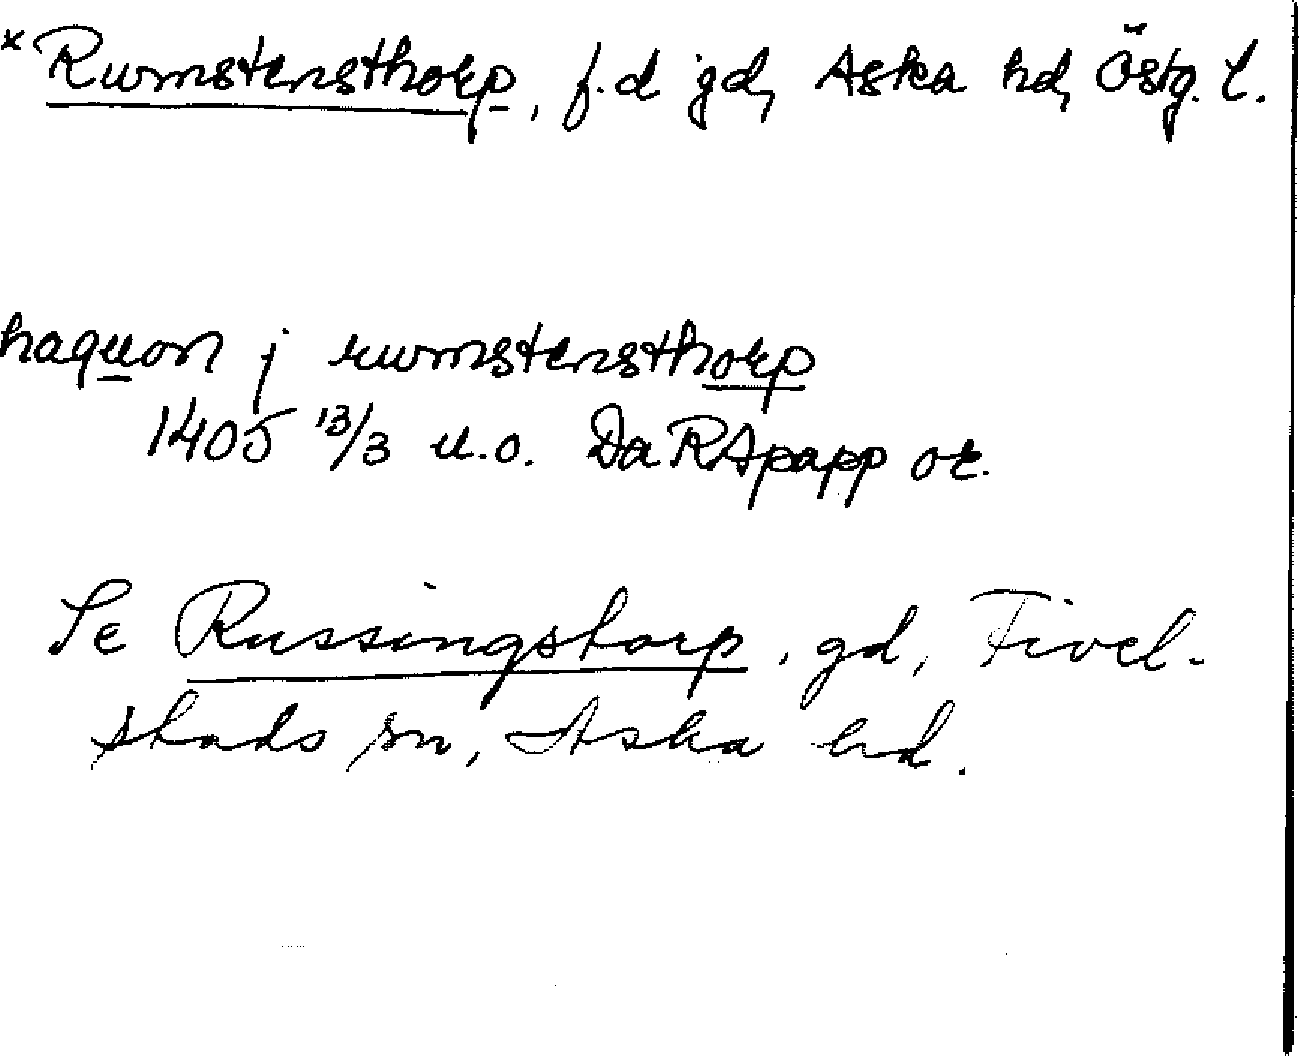 * Rumstensthorp, f.d gd, Aska hd, Östg. l.
haquon j rumstensthorp
1405 13/3 u.o. DaRApapp or.
Se Russingstorp, gd, Fivel-
stads sn, Aska hd.